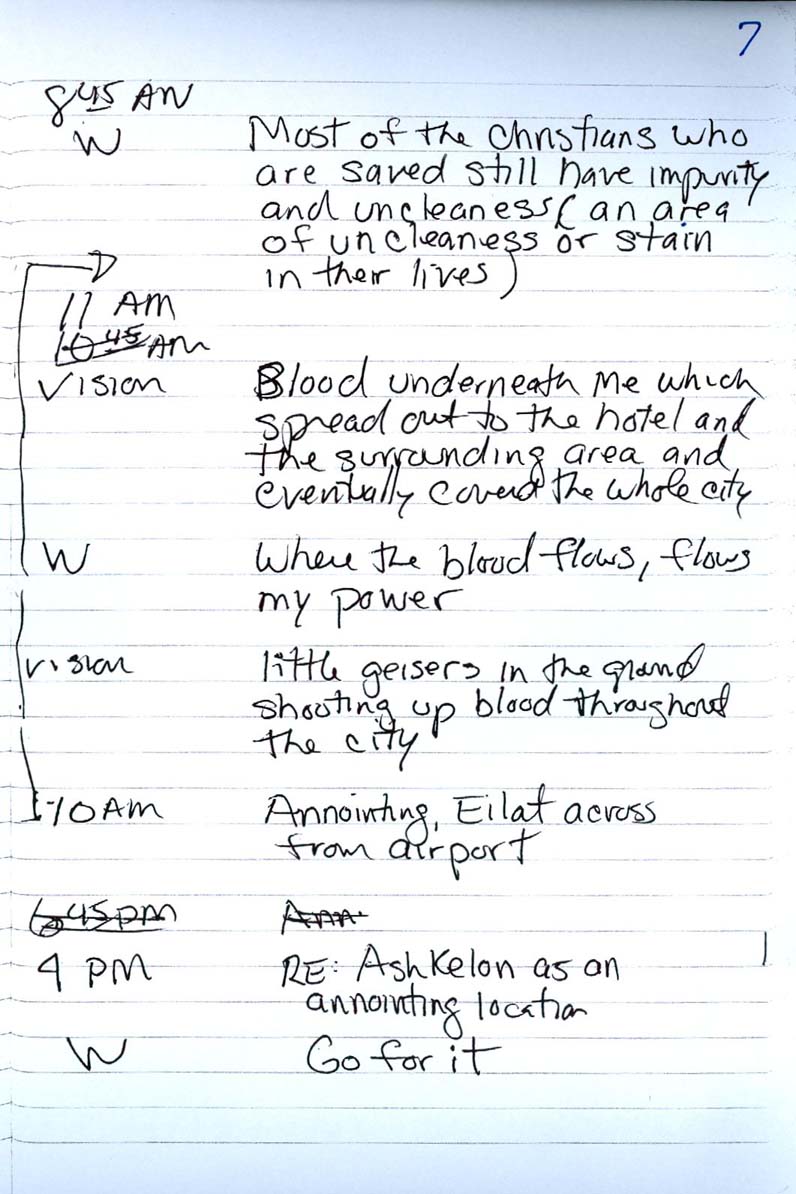 7
8 45 AM
W Most of the Christians who
are saved still have impurity
and uncleaness ( an area
of uncleaness or stain
in their lives )
11 AM
10 45 AM
Vision Blood underneath me which
spread out to the hotel and
the surrounding area and
eventually covered the whole city
W Where the blood flows, flows
my power
vision little geisers in the ground
shooting up blood throughout
the city
10 AM Annointing, Eilat across
from airport
6 45 pm Ann
4 PM RE: Ashkelon as an
annointing location
W Go for it